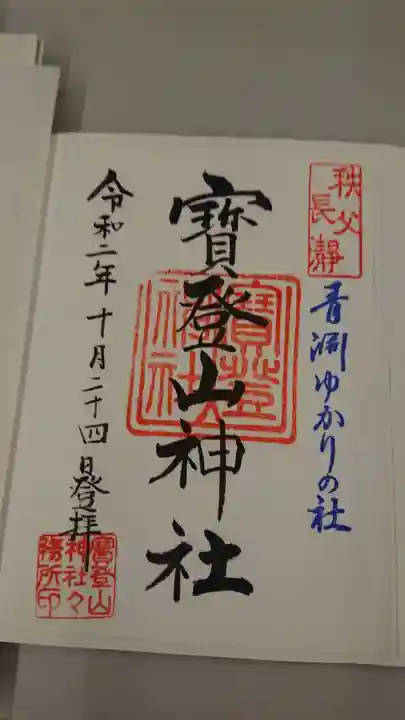 秩父
長瀞
青淵ゆかりの社
寶登山神社
寶登山
神社
令和二年十月二十四日登拝
寶登山
神社々
務所印